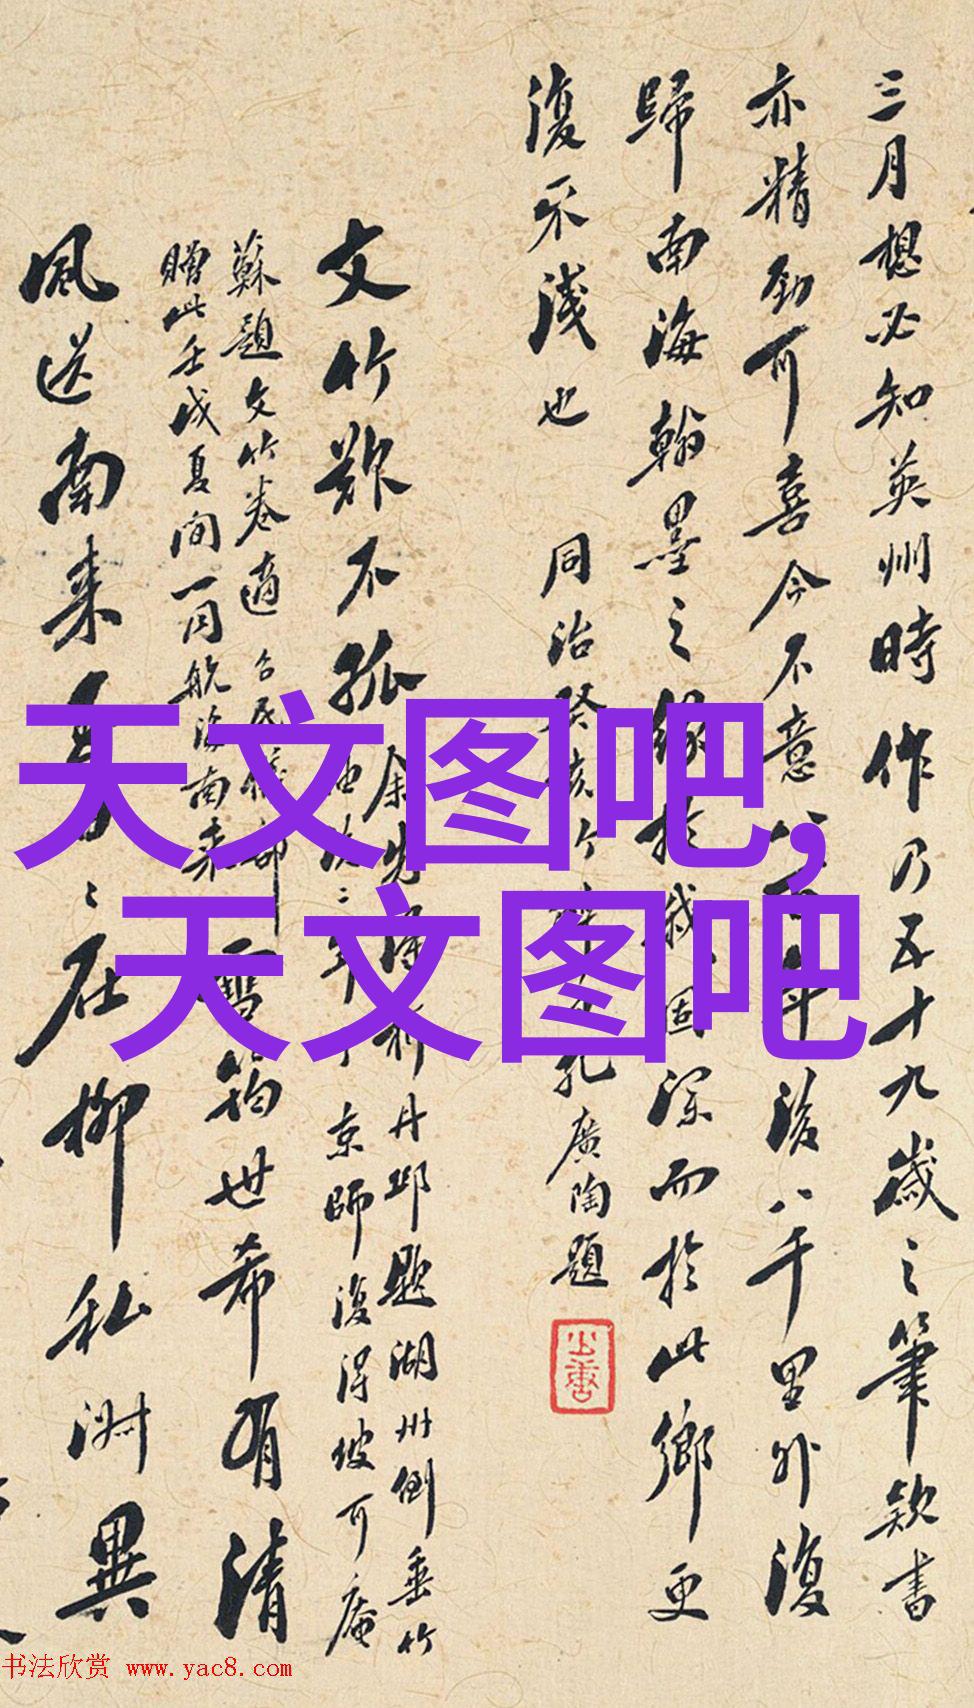 三月想必知英州時作乃五十九歲之筆款書
亦精勁可喜今不意八百年後八千里外復
歸南海翰墨之緣於我固深而於此鄉更
復不淺也 同治癸亥 孔廣陶題
文竹歎不孤
余先得柯丹邱題湖州倒垂竹
京師復得坡可庵
蘇題文竹卷適
贈此壬戌夏間一同航海南來
雪筠世希有清
風送南來
在柳私淑異
天文图吧,
天文图吧
书法欣赏 www.yac8.com